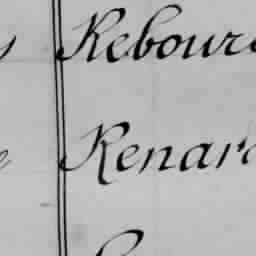 Rebour
Renar